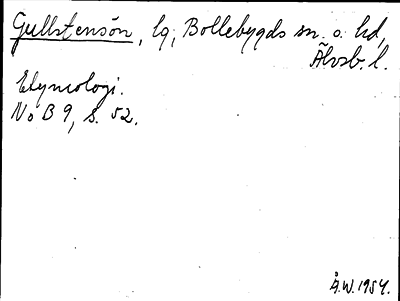 Gullstensön, lg, Bollebygds sn. o. hd,
Älvsb. l.
Etymologi.
No B 9, s. 52.
Å.W. 1954.